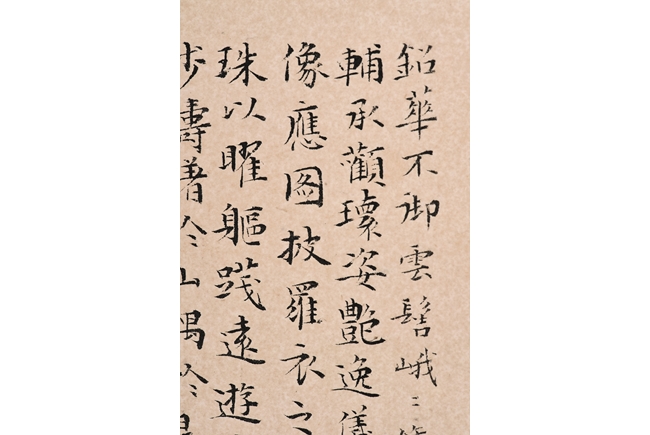 鉛華不御雲髻峨〻
輔承顴瓌姿艷逸儀
像應圖披羅衣之
珠以曜軀踐遠遊
步躊躇於山隅於